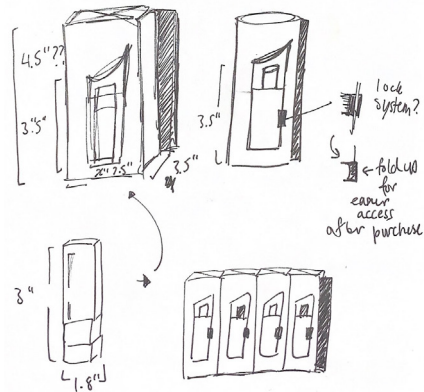 4.5"??
3."5"
2.5"
3.5"
3.5"
lock
system?
fold up
for
easier
access
after purchase
3"
1.8"